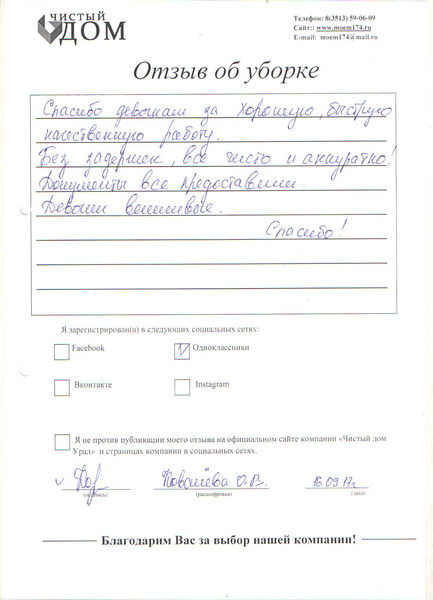 ЧИСТЫЙ
ДОМ
Телефон: 8(3513) 59-06-09
Сайт:: www.moem174.ru
E-mail: moem174@mail.ru
Отзыв об уборке
Спасибо девочкам за хорошую, быструю
качественную работу.
Без задержек, все чисто и аккуратно!
Документы все предоставили.
Девочки вежливые.
Спасибо!
Я зарегистрирован(а) в следующих социальных сетях:
Facebook
Одноклассники
Вконтакте
Instagram
Я не против публикации моего отзыва на официальном сайте компании «Чистый дом
Урал» и страницах компании в социальных сетях.
О.В. 16.09.17г.
(подпись) (расшифровка) (дата)
Благодарим Вас за выбор нашей компании!